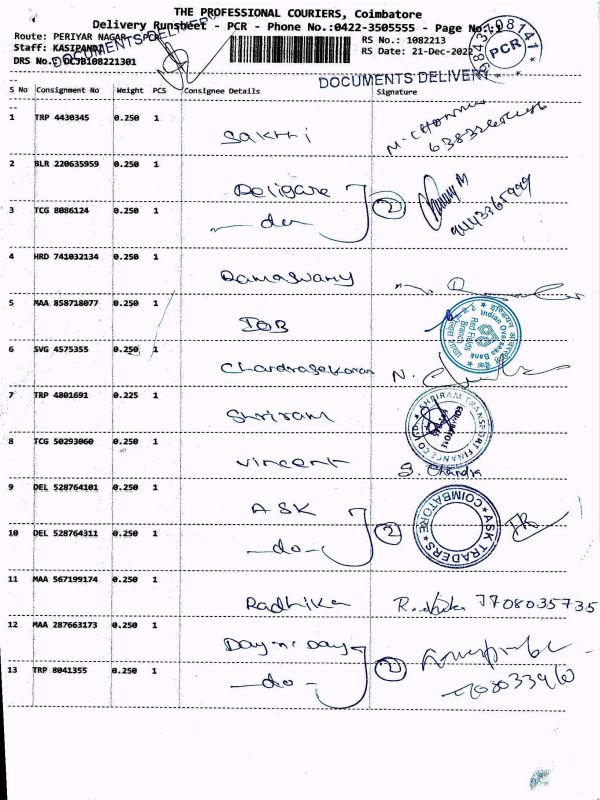 THE PROFESSIONAL COURIERS, Coimbatore
Delivery Runsheet - PCR - Phone No.:0422-3505555 - Page No.:1
Route: PERIYAR NAGAR - PCR
RS No.: 1082213
Staff: KASIPANDI
RS Date: 21-Dec-2022
DRS No.:
DOCUMENTS DELIVERY
DOCUMENTS DELIVERY
PCR
S No Consignment No Weight PCS Consignee Details Signature
1 TRP 4430345 0.250 1 Sakthi
2 BLR 220635959 0.250 1 Religare
3 TCG 8086124 0.250 1 -do- 2
4 HRD 741032134 0.250 1 Ramaswamy
5 MAA 858718077 0.250 1 IOB
Indian Overseas Bank
Red Fields
Branch
6 SVG 4575355 0.250 1 Chandrasekaran N.
7 TRP 4801691 0.225 1 Shriram
SHRIRAM TRANSPORT FINANCE CO
8 TCG 50293060 0.250 1 Vincent S. Chandra
9 DEL 528764101 0.250 1 ASK
10 DEL 528764311 0.250 1 -do- 2
ASK TRADERS
COIMBATORE
11 MAA 567199174 0.250 1 Radhika 7708035735
12 MAA 287663173 0.250 1 Day n Day
13 TRP 8041355 0.250 1 -do- 2